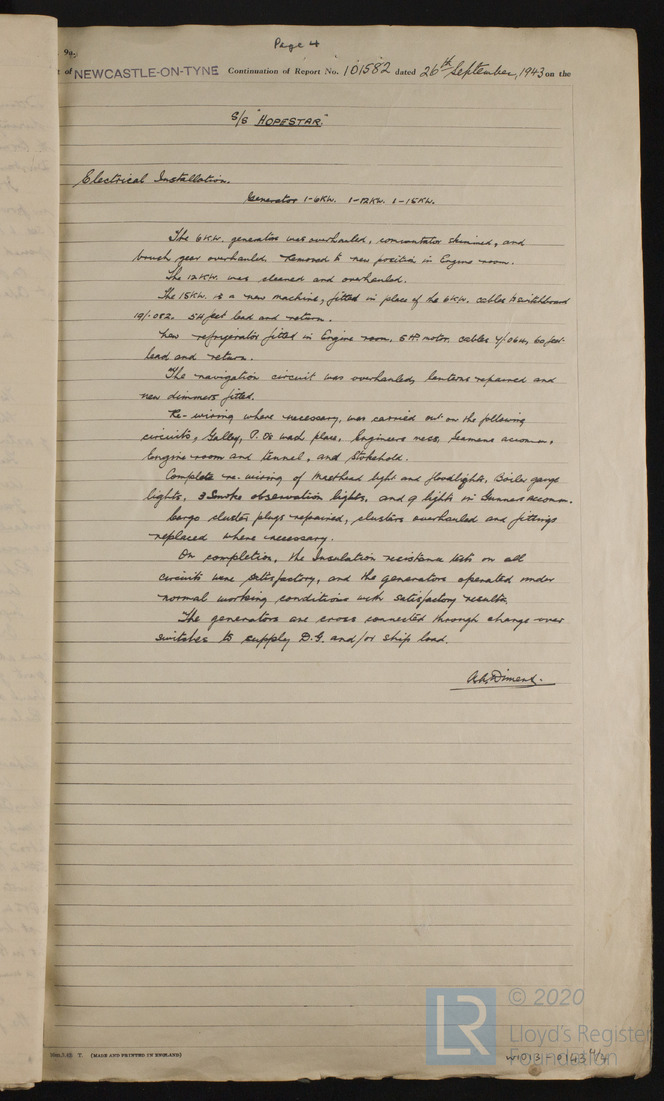 Page 4
9a.
t of NEWCASTLE-ON-TYNE Continuation of Report No. 101582 dated 26th September, 1943 on the
S/S "HOPESTAR."
Electrical Installation.
Generator 1-6KW. 1-12KW. 1-15KW.
The 6KW. generator was overhauled, commutator skimmed, and
brush gear overhauled. Removed to new position in Engine room.
The 12KW. was cleaned and overhauled.
The 15KW. is a new machine, fitted in place of the 6KW. cables to switchboard
19/.052. 54 feet lead and return.
New refrigerator fitted in Engine room, 5 HP. motor. cables 7/064, 60 feet
lead and return.
The navigation circuit was overhauled, lanterns repaired and
new dimmers fitted.
Re-wiring where necessary, was carried out on the following
circuits, Galley, P. Os wash place, Engineers mess, Seamens accomm.,
Engine room and tunnel, and Stokehold.
Complete re-wiring of Masthead light and floodlights, Boiler gauge
lights, 3 Smoke observation lights, and 9 lights in Gunners accomm.
Cargo cluster plugs repaired, clusters overhauled and fittings
replaced where necessary.
On completion, the Insulation resistance tests on all
circuits were satisfactory, and the generators operated under
normal working conditions with satisfactory results.
The generators are cross connected through change-over
switches to supply D.G. and/or ship load.
Diment.
T. (MADE AND PRINTED IN ENGLAND)
LR © 2020
Lloyd's Register
Foundation
W1013-0143 4/4